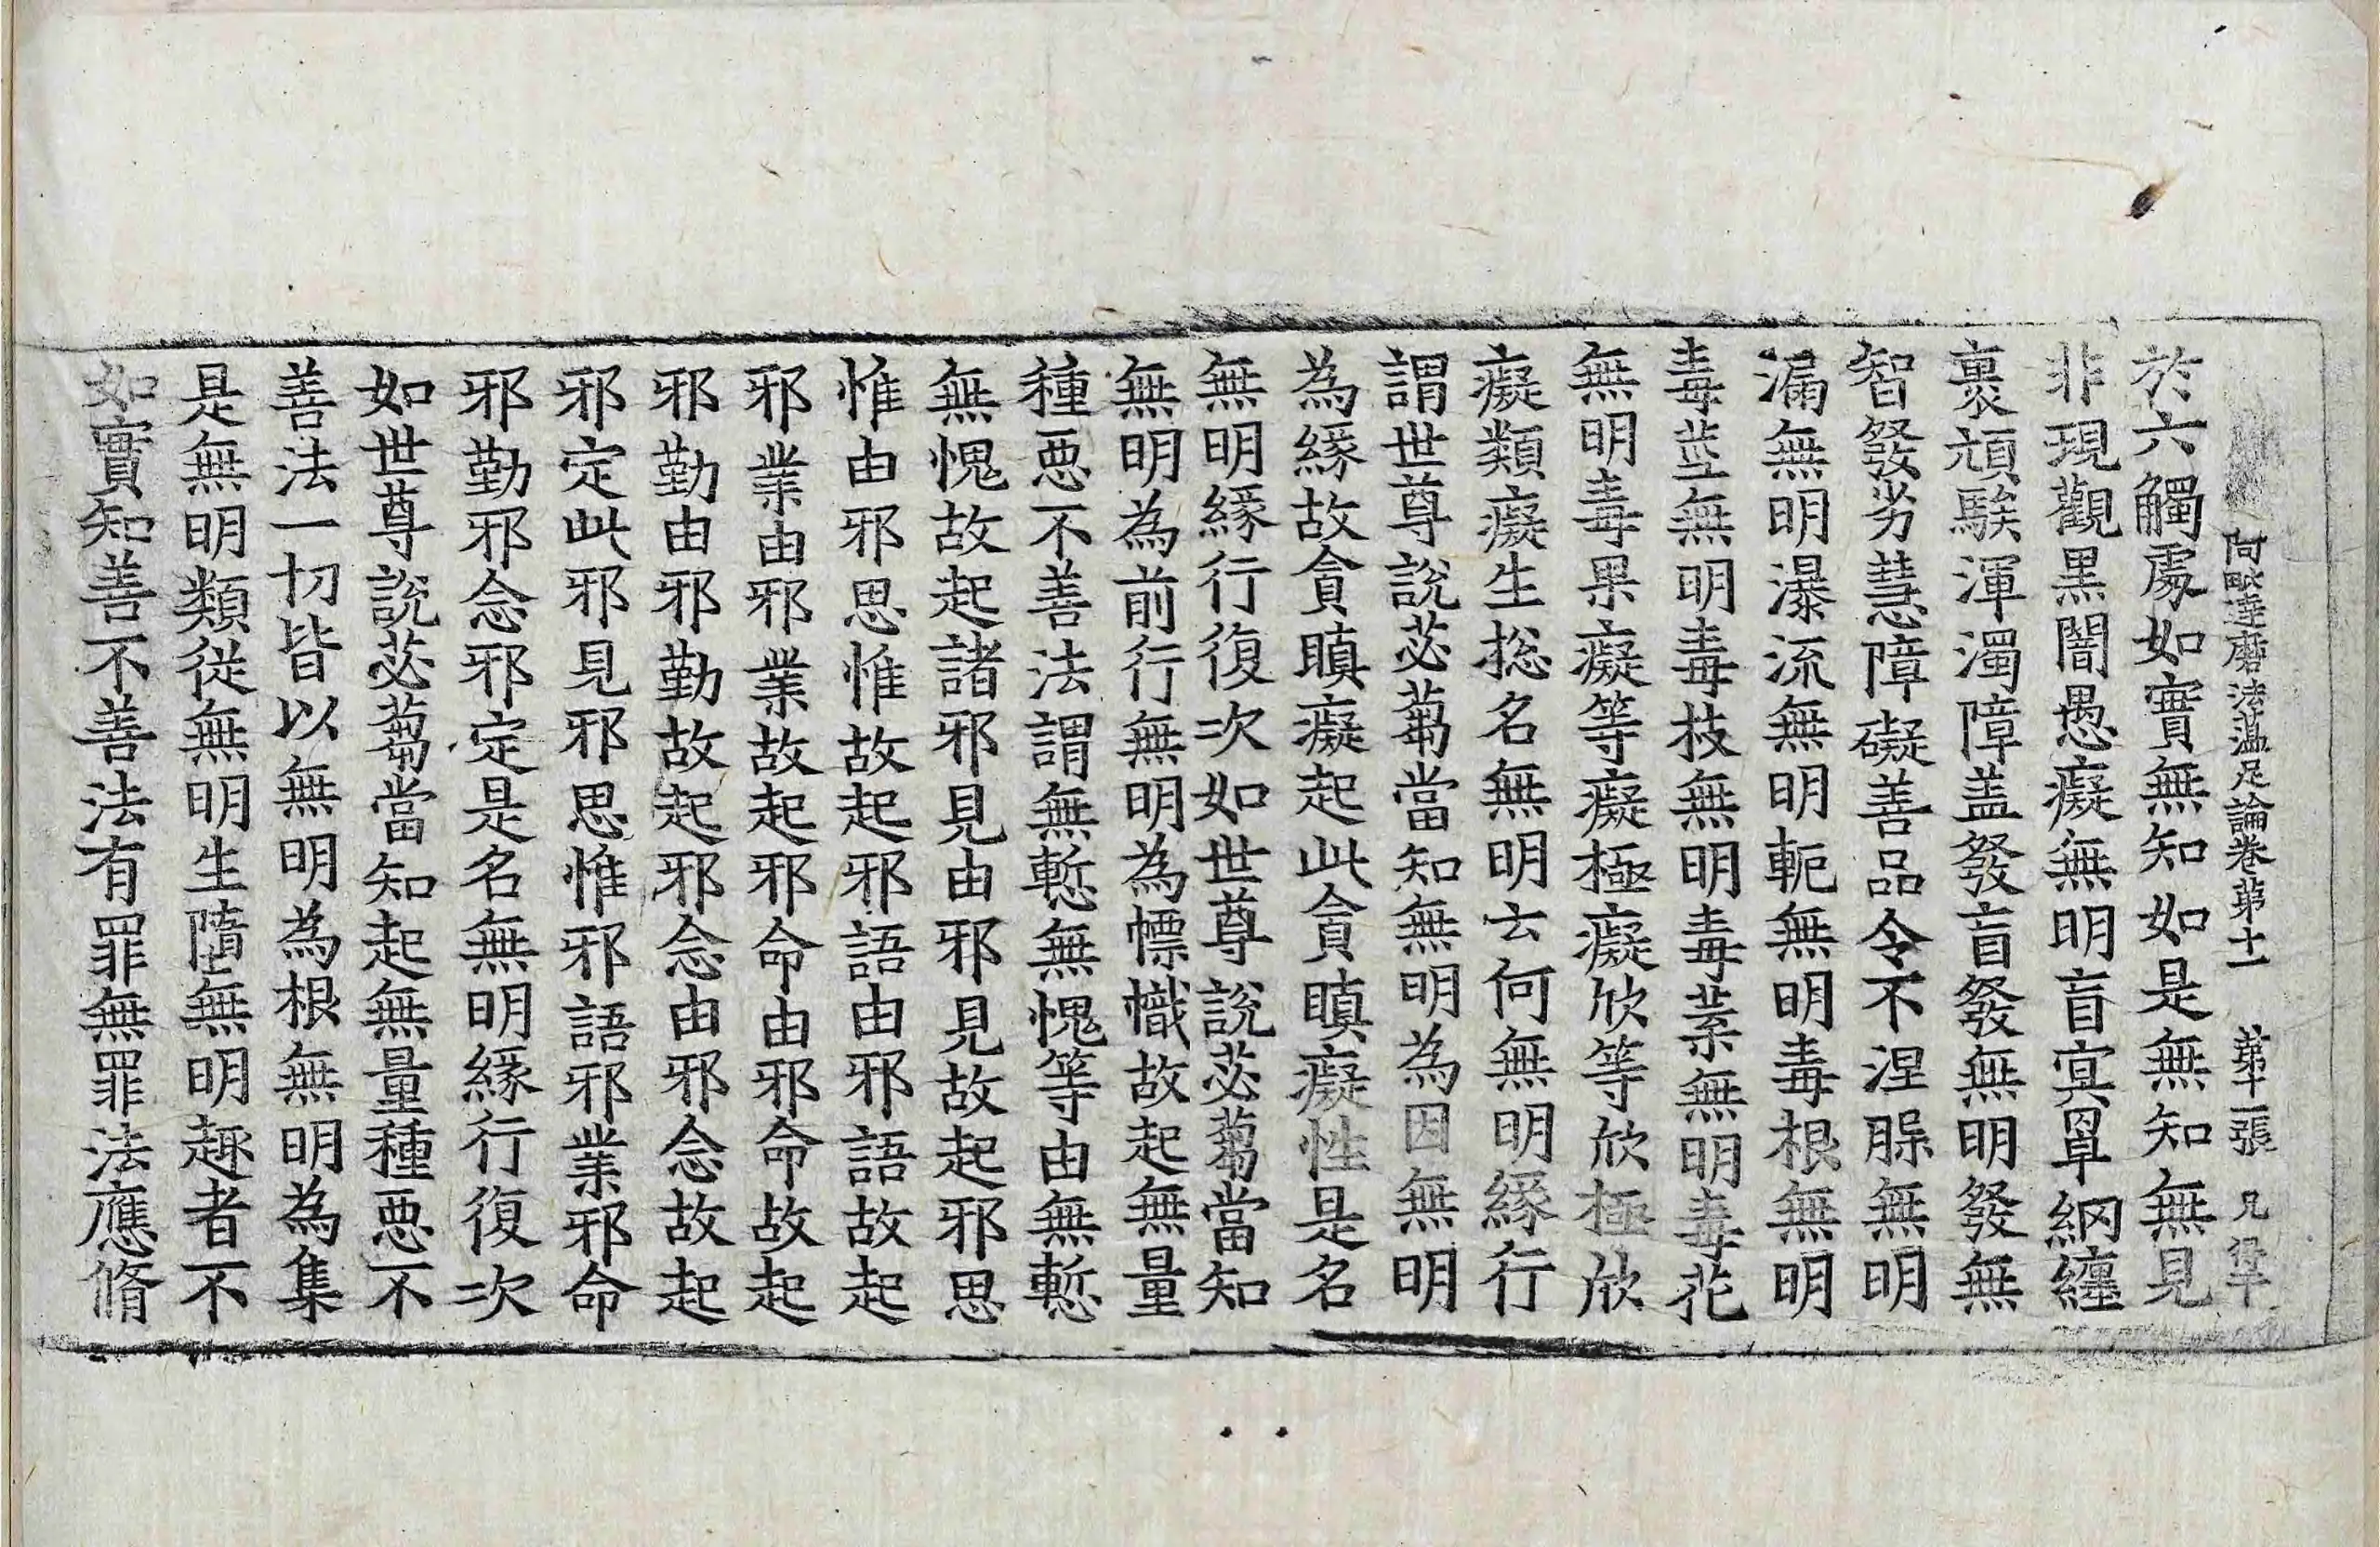 阿毗達磨法蘊足論卷苐十一　苐十二張　兄
於六觸處如實無知如是無知無見
非現觀黒闇愚癡無明盲冥罩網纏
裹頑騃渾濁障盖發盲發無明發無
智發劣慧障礙善品令不涅槃無明
漏無明瀑流無明軛無明毒根無明
毒莖無明毒枝無明毒葉無明毒花
無明毒果癡等癡極癡欣等欣極欣
癡類癡生捴名無明云何無明緣行
謂世尊說苾蒭當知無明為因無明
為緣故貪瞋癡起此貪瞋癡性是名
無明緣行復次如世尊說苾蒭當知
無明為前行無明為幖幟故起無量
種惡不善法謂無慙無愧等由無慙
無愧故起諸邪見由邪見故起邪思
惟由邪思惟故起邪語由邪語故起
邪業由邪業故起邪命由邪命故起
邪勤由邪勤故起邪念由邪念故起
邪定此邪見邪思惟邪語邪業邪命
邪勤邪念邪定是名無明緣行復次
如世尊說苾蒭當知起無量種惡不
善法一切皆以無明為根無明為集
是無明類從無明生墮無明趣者不
如實知善不善法有罪無罪法應脩